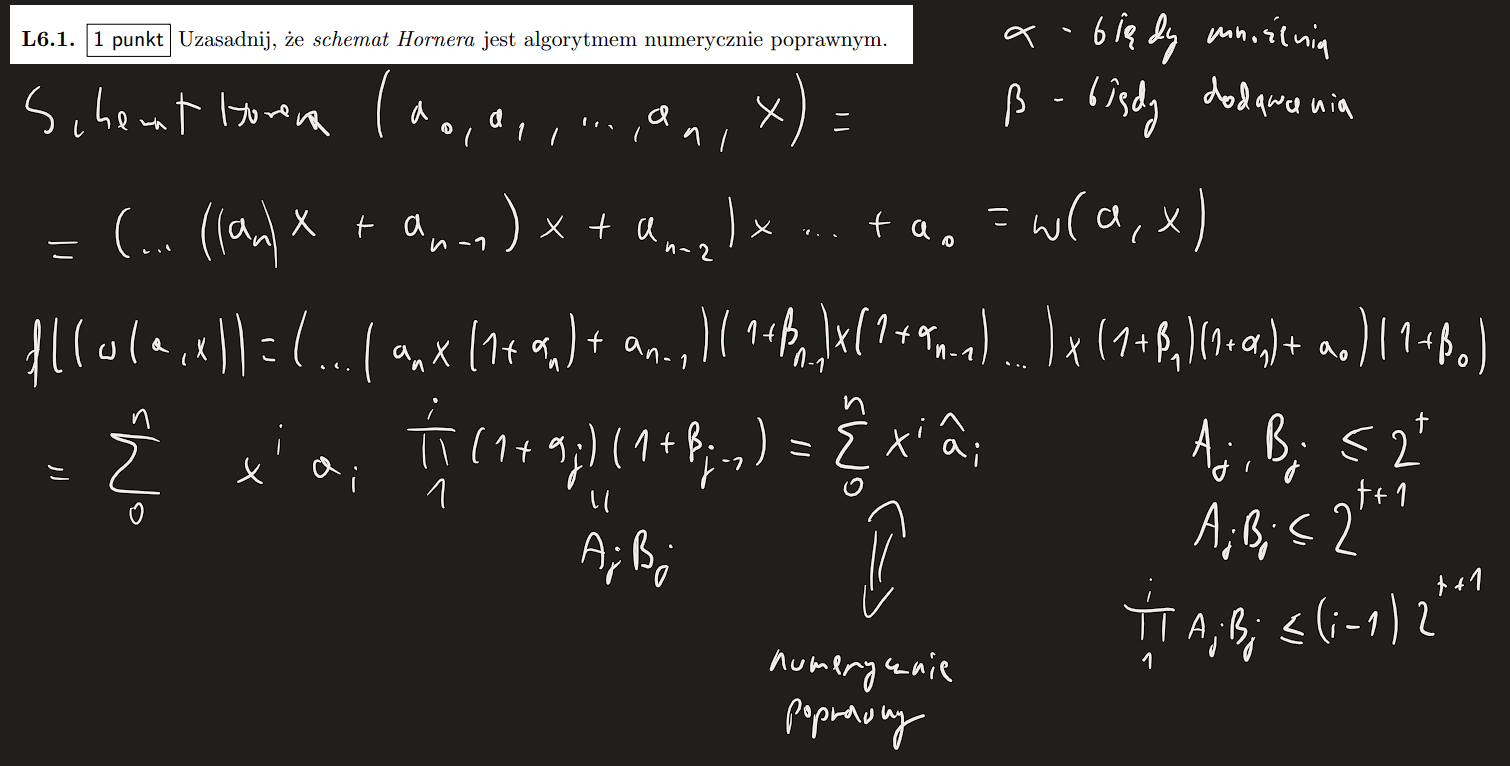 L6.1. 1 punkt Uzasadnij, że schemat Hornera jest algorytmem numerycznie poprawnym.
α - błędy mnożenia
β - błędy dodawania
Schemat Hornera (a_0, a_1, ..., a_n, x) =
= (... ((a_n) x + a_{n-1}) x + a_{n-2}) x ... + a_0 = w(a, x)
fl(w(a,x)) = (...( a_n x (1+α_n) + a_{n-1})(1+β_{n-1}) x (1+α_{n-1}) ... ) x (1+β_1)(1+α_1) + a_0)(1+β_0)
= ∑_0^n x^i a_i ∏_1^i (1+α_j)(1+β_{j-1}) = ∑_0^n x^i â_i
A_j B_j
numerycznie
poprawny
A_j, B_j ≤ 2^t
A_j B_j ≤ 2^{t+1}
∏_1^i A_j B_j ≤ (i-1) 2^{t+1}